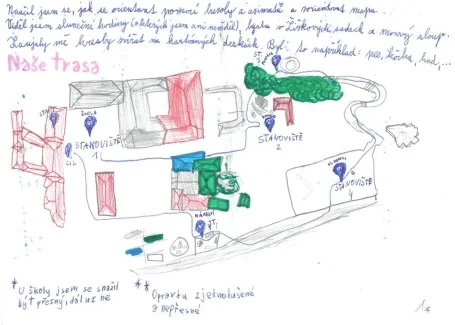 Naučil jsem se, jak se orientovat pomocí buzoly a azimutů a orientovat mapu.
Viděl jsem sluneční hodiny (o kterých jsem ani nevěděl) v Žižkových sadech a morový sloup.
mě kresby zvířat na kartonových deskách. Byli to například: pes, kočka, had,...
Naše trasa
START
ŠKOLA
CÍL
STANOVIŠTĚ
1
STANOVIŠTĚ
2
ST.
3
STANOVIŠTĚ
4
*
U školy jsem se snažil
být přesný, dál už ne
**
Opravdu zjednodušené
a nepřesné